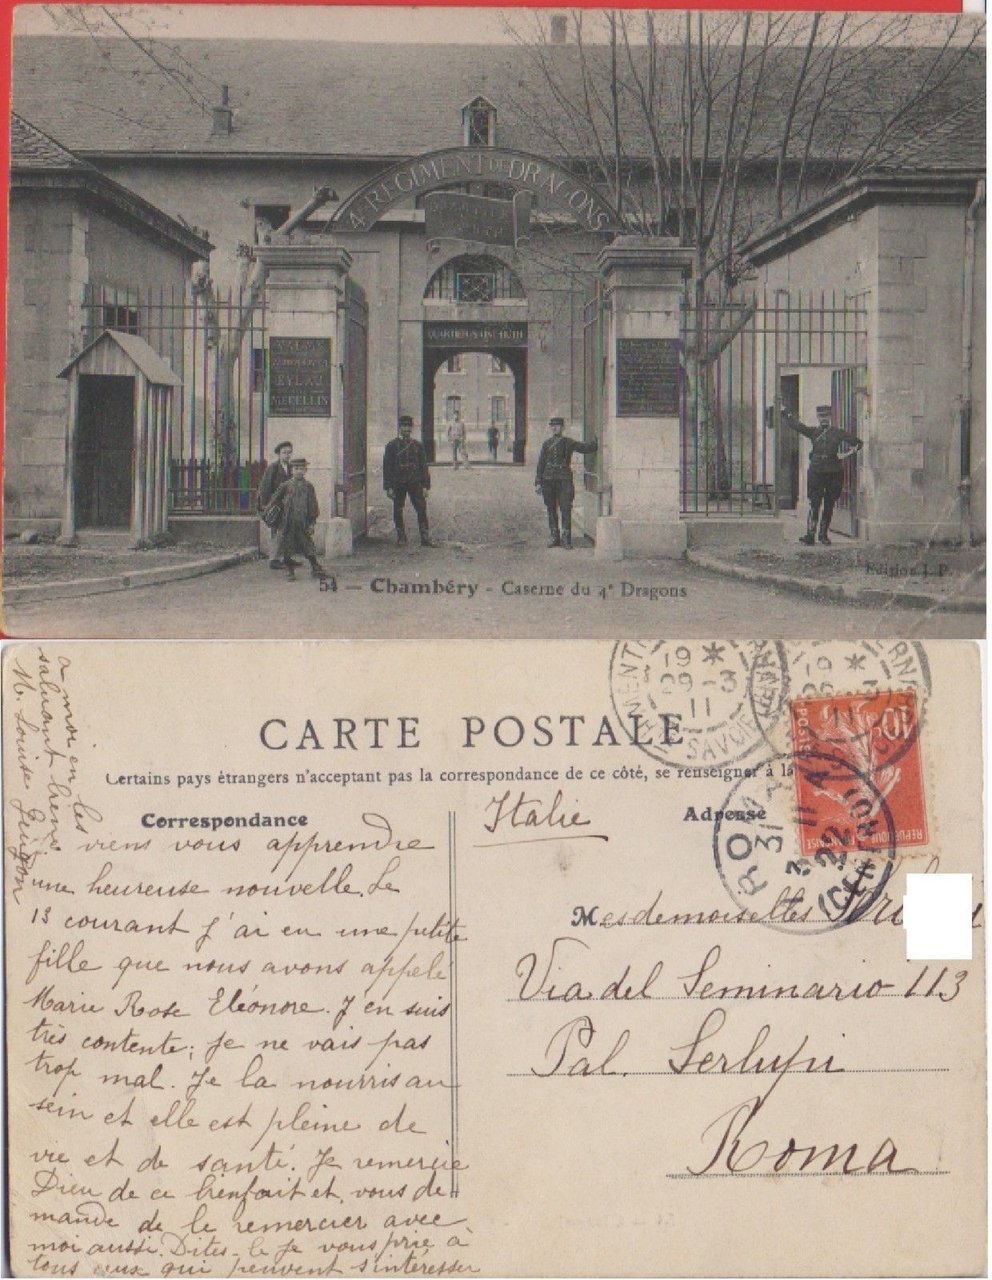 4e REGIMENT DE DRAGONS
QUARTIER
EYLAU
MEDELLIN
54 — Chambéry - Caserne du 4e Dragons
Edition J. P.
CARTE POSTALE
Certains pays étrangers n'acceptant pas la correspondance de ce côté, se renseigner à la
Correspondance
Adresse
Italie
10
POSTES
REPUBLIQUE FRANÇAISE
19 *
29-3
11
SAVOIE
19 *
3
11
ROMA
31 3 11
22
(CENTRO)
Je viens vous apprendre
une heureuse nouvelle. Le
13 courant j'ai eu une petite
fille que nous avons appelé
Marie Rose Eléonore. J'en suis
très contente; je ne vais pas
trop mal. Je la nourris au
sein et elle est pleine de
vie et de santé. Je remercie
Dieu de ce bienfait et vous de
mande de le remercier avec
moi aussi. Dites-le je vous prie à
tous ceux qui peuvent s'intéresser
a moi en les
saluant bien
M. Louise
Mesdemoiselles
Via del Seminario 113
Pal. Serlupi
Roma